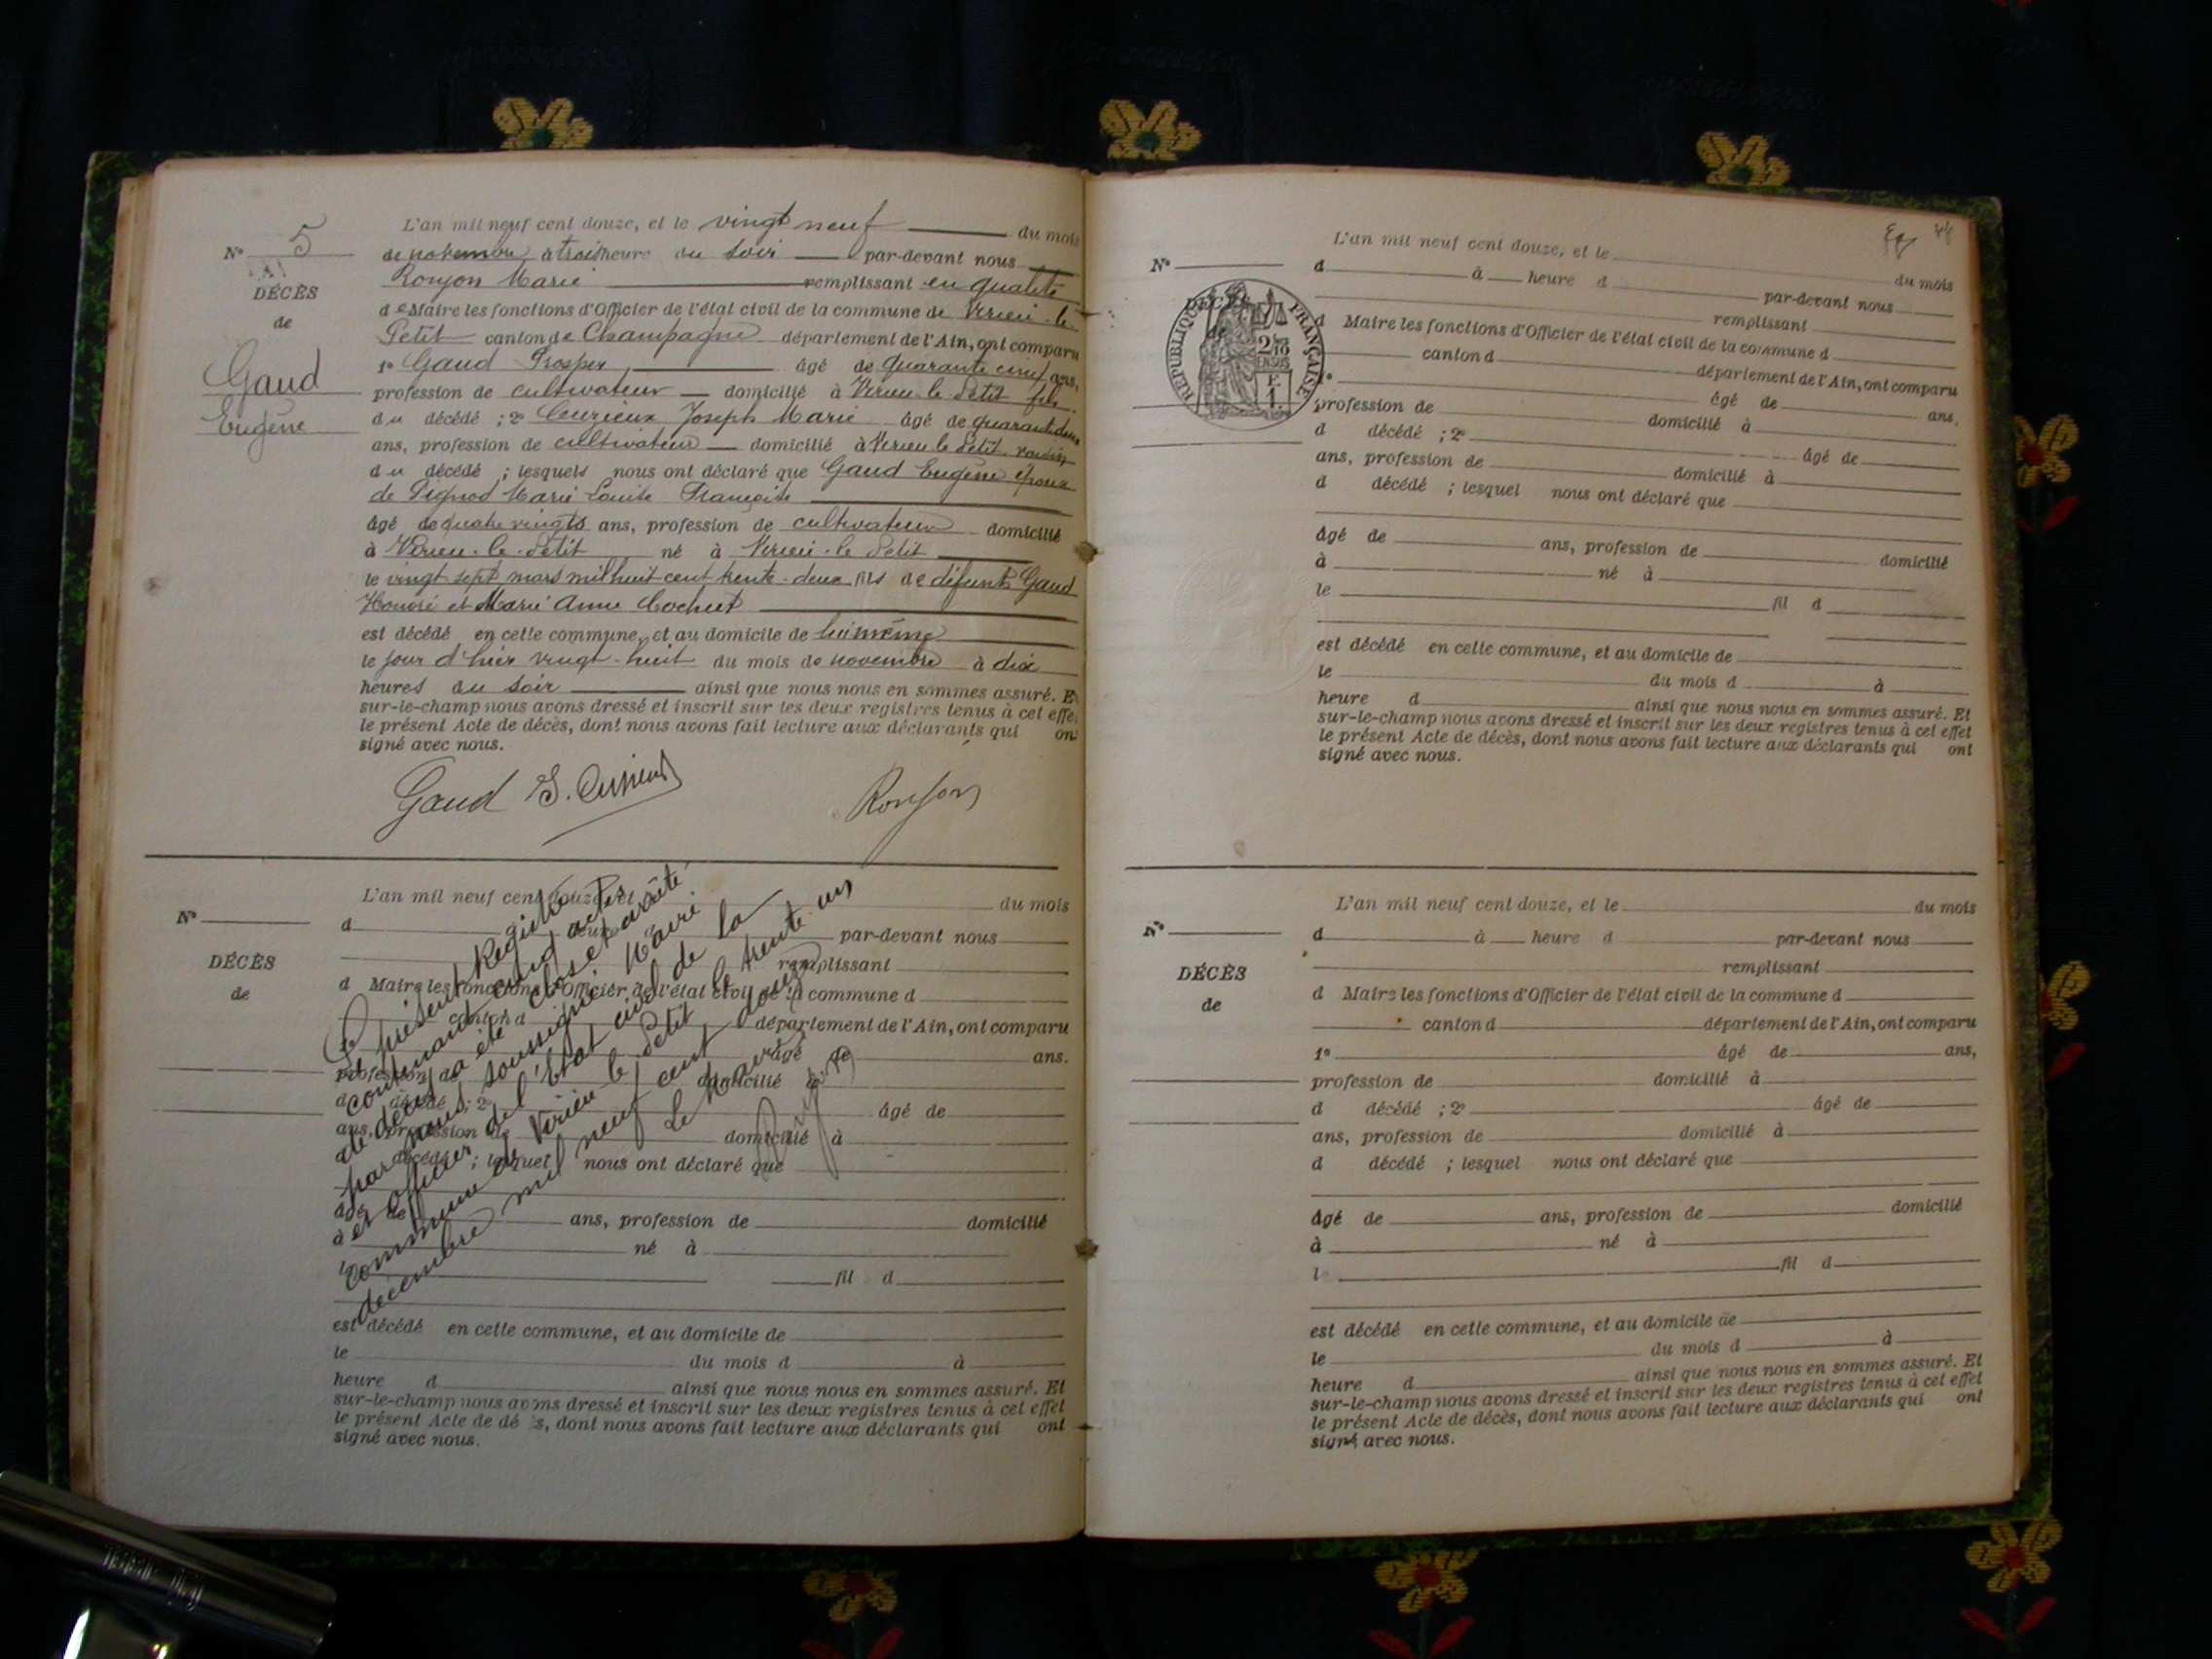 N° 5
DÉCÈS
de
Gaud
Eugène
L'an mil neuf cent douze, et le vingt neuf du mois
de novembre à trois heure du soir par-devant nous
Ronjon Marie remplissant en qualité
de Maire les fonctions d'Officier de l'état civil de la commune de Virieu-le-
Petit canton de Champagne département de l'Ain, ont comparu
1° Gaud Prosper âgé de quarante cinq ans,
profession de cultivateur domicilié à Virieu-le-Petit fils
du décédé ; 2° Cuzieux Joseph Marie âgé de quarante deux
ans, profession de cultivateur domicilié à Virieu le Petit voisin
du décédé ; lesquels nous ont déclaré que Gaud Eugène époux
de Pignod Marie Louise Françoise
âgé de quatre vingts ans, profession de cultivateur domicilié
à Virieu-le-Petit né à Virieu-le Petit
le vingt sept mars mil huit cent trente-deux fils de défunts Gaud
Honoré et Marie Anne Cochet
est décédé en cette commune, et au domicile de lui même
le jour d'hier vingt-huit du mois de novembre à dix
heures du soir ainsi que nous nous en sommes assuré. E
sur-le-champ nous avons dressé et inscrit sur les deux registres tenus à cet effet
le présent Acte de décès, dont nous avons fait lecture aux déclarants qui on
signé avec nous.
Gaud J. Cuzieux Ronjon
L'an mil neuf cent douze, et le du mois
N°
d à heure d par-devant nous
DÉCÈS
de
remplissant
d Maire les fonctions d'Officier de l'état civil de la commune d
canton d département de l'Ain, ont comparu
âgé de ans.
profession de domicilié à
d décédé ; 2° âgé de
ans, profession de domicilié à
décédé ; lesquel nous ont déclaré que
âgé de ans, profession de domicilié
à né à
fil d
est décédé en cette commune, et au domicile de
le du mois d à
heure d ainsi que nous nous en sommes assuré. Et
sur-le-champ nous avons dressé et inscrit sur les deux registres tenus à cet effet
le présent Acte de décès, dont nous avons fait lecture aux déclarants qui ont
signé avec nous.
Le présent Registre
contenant cinq actes
de décès a été clos et arrêté
par nous soussigné Maire
et officier de l'état civil de la
commune de Virieu le Petit le trente un
décembre mil neuf cent douze
Le Maire
L'an mil neuf cent douze, et le du mois
N°
d à heure d par-devant nous
DÉCÈS
de
RÉPUBLIQUE FRANÇAISE
remplissant
d Maire les fonctions d'Officier de l'état civil de la commune d
canton d département de l'Ain, ont comparu
1° âgé de ans,
profession de domicilié à
d décédé ; 2° âgé de
ans, profession de domicilié à
d décédé ; lesquel nous ont déclaré que
âgé de ans, profession de domicilié
à né à
le fil d
est décédé en cette commune, et au domicile de
le du mois d à
heure d ainsi que nous nous en sommes assuré. Et
sur-le-champ nous avons dressé et inscrit sur les deux registres tenus à cet effet
le présent Acte de décès, dont nous avons fait lecture aux déclarants qui ont
signé avec nous.
L'an mil neuf cent douze, et le du mois
N°
d à heure d par-devant nous
DÉCÈS
de
remplissant
d Maire les fonctions d'Officier de l'état civil de la commune d
canton d département de l'Ain, ont comparu
1° âgé de ans,
profession de domicilié à
d décédé ; 2° âgé de
ans, profession de domicilié à
d décédé ; lesquel nous ont déclaré que
âgé de ans, profession de domicilié
à né à
l fil d
est décédé en cette commune, et au domicile de
le du mois d à
heure d ainsi que nous nous en sommes assuré. Et
sur-le-champ nous avons dressé et inscrit sur les deux registres tenus à cet effet
le présent Acte de décès, dont nous avons fait lecture aux déclarants qui ont
signé avec nous.